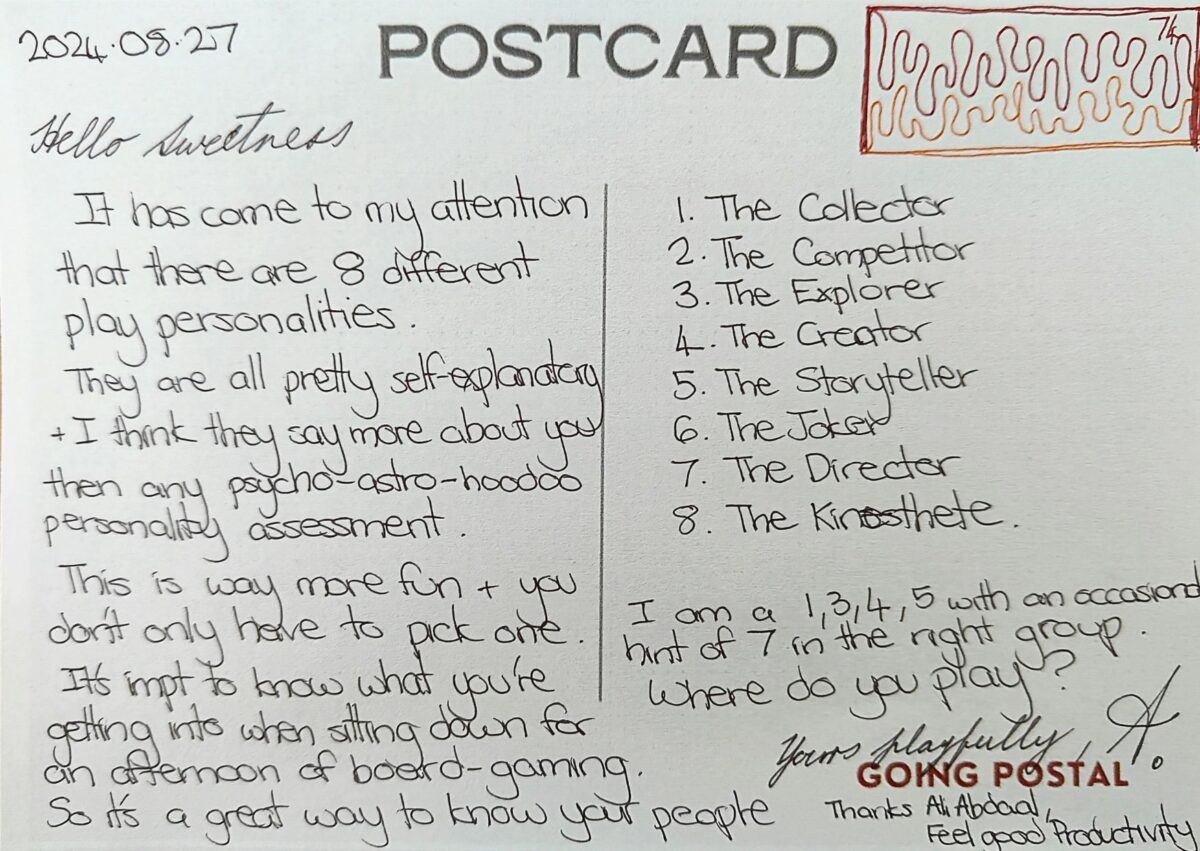 2024.08.27
POSTCARD
74
Hello Sweetness
It has come to my attention
that there are 8 different
play personalities.
They are all pretty self-explanatory
+ I think they say more about you
then any psycho-astro-hoodoo
personality assessment.
This is way more fun + you
don't only have to pick one.
It's impt to know what you're
getting into when sitting down for
an afternoon of board-gaming.
So it's a great way to know your people
1. The Collector
2. The Competitor
3. The Explorer
4. The Creator
5. The Storyteller
6. The Joker
7. The Director
8. The Kinesthete.
I am a 1,3,4,5 with an occasional
hint of 7 in the right group.
Where do you play?
Yours playfully, A.
GOING POSTAL
Thanks Ali Abdaal,
Feel good Productivity